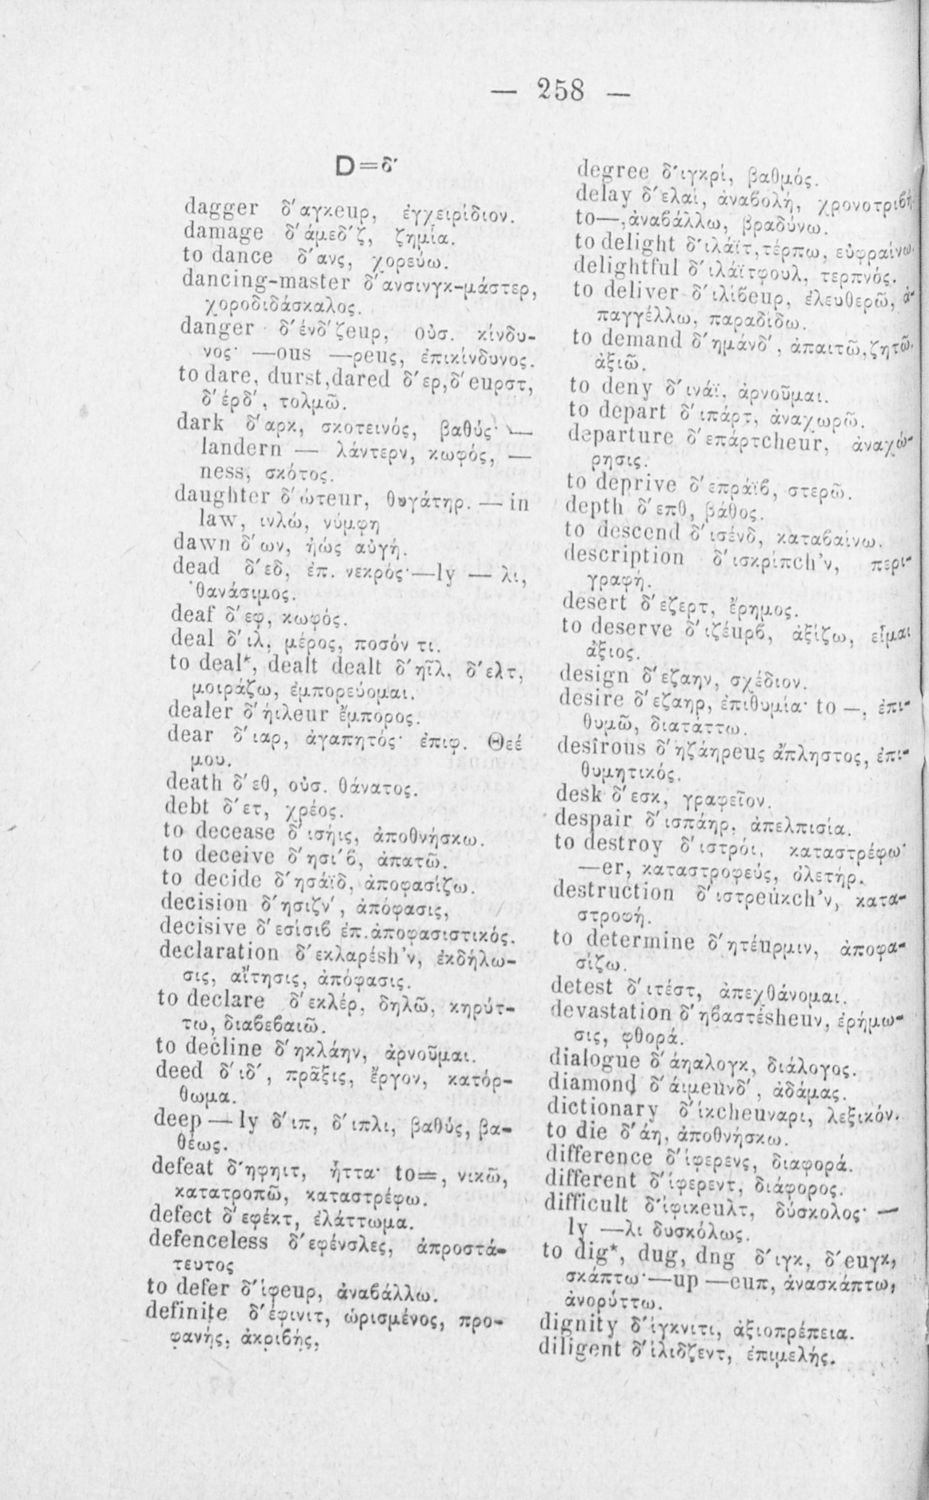 — 258 —
D=δ'
dagger δ'αγκευρ, ἐγχειρίδιον.
damage δ'άμεδ'ζ, ζημία.
to dance δ'ανς, χορεύω.
dancing-master δ'ανσινγκ-μάστερ,
χοροδιδάσκαλος.
danger δ'ένδ'ζευρ, οὐσ. κίνδυ-
νος· —ous —ρευς, ἐπικίνδυνος.
to dare, durst,dared δ'ερ,δ'ευρστ,
δ'έρδ', τολμῶ.
dark δ'αρκ, σκοτεινός, βαθύς· —
landern — λάντερν, κωφός, —
ness, σκότος.
daughter δ'ώτeur, θυγάτηρ. — in
law, ινλώ, νύμφη
dawn δ'ων, ἠώς αὐγή.
dead δ'εδ, ἐπ. νεκρός·—ly — λι,
θανάσιμος.
deaf δ'εφ, κωφός.
deal δ'ιλ, μέρος, ποσόν τι.
to deal*, dealt dealt δ'ηῖλ, δ'ελτ,
μοιράζω, ἐμπορεύομαι.
dealer δ'ήιλeur ἔμπορος.
dear δ'ιαρ, ἀγαπητός· ἐπιφ. Θεέ
μου.
death δ'εθ, οὐσ. θάνατος.
debt δ'ετ, χρέος.
to decease δ'ισήις, ἀποθνήσκω.
to deceive δ'ησι'ϐ, ἀπατῶ.
to decide δ'ησάϊδ, ἀποφασίζω.
decision δ'ησιζν', ἀπόφασις,
decisive δ'εσίσιϐ ἐπ.ἀποφασιστικός.
declaration δ'εκλαρέsh'ν, ἐκδήλω-
σις, αἴτησις, ἀπόφασις.
to declare δ'εκλέρ, δηλῶ, κηρύτ-
τω, διαϐεϐαιῶ.
to decline δ'ηκλάην, ἀρνοῦμαι.
deed δ'ιδ', πρᾶξις, ἔργον, κατόρ-
θωμα.
deep — ly δ'ιπ, δ'ιπλι, βαθύς, βα-
θέως.
defeat δ'ηφηιτ, ἧττα· to=, νικῶ,
κατατροπῶ, καταστρέφω.
defect δ'εφέκτ, ἐλάττωμα.
defenceless δ'εφένσλες, ἀπροστά-
τευτος
to defer δ'ίφeuρ, ἀναϐάλλω.
definite δ'έφινιτ, ὡρισμένος, προ-
φανής, ἀκριϐής,
degree δ'ιγκρί, βαθμός.
delay δ'ελαί, ἀναϐολή, χρονοτριϐή·
to—,ἀναϐάλλω, βραδύνω.
to delight δ'ιλάϊτ,τέρπω, εὐφραίνω·
delightful δ'ιλάϊτφουλ, τερπνός.
to deliver δ'ιλίϐeuρ, ἐλευθερῶ, ἀ-
παγγέλλω, παραδίδω.
to demand δ'ημάνδ', ἀπαιτῶ,ζητῶ·
ἀξιῶ.
to deny δ'ινάϊ, ἀρνοῦμαι.
to depart δ'ιπάρτ, ἀναχωρῶ.
departure δ'επάρτcheur, ἀναχώ-
ρησις.
to deprive δ'επράϊϐ, στερῶ.
depth δ'επθ, βάθος.
to descend δ'ισένδ, καταϐαίνω.
description δ'ισκρίπch'ν, περι-
γραφή.
desert δ'εζερτ, ἔρημος.
to deserve δ'ιζέuρϐ, ἀξίζω, εἶμαι
ἄξιος.
design δ'εζαην, σχέδιον.
desire δ'εζαηρ, ἐπιθυμία· to —, ἐπι-
θυμῶ, διατάττω.
desirous δ'ηζάηρeuς ἄπληστος, ἐπι-
θυμητικός.
desk δ'εσκ, γραφεῖον.
despair δ'ισπάηρ, ἀπελπισία.
to destroy δ'ιστρόι, καταστρέφω·
—er, καταστροφεύς, ὀλετήρ.
destruction δ'ιστρεύκch'ν, κατα-
στροφή.
to determine δ'ητέuρμιν, ἀποφα-
σίζω.
detest δ'ιτέστ, ἀπεχθάνομαι.
devastation δ'ηϐαστέsheuν, ἐρήμω-
σις, φθορά.
dialogue δ'άηαλογκ, διάλογος.
diamond δ'άιμeuνδ', ἀδάμας.
dictionary δ'ίκcheuναρι, λεξικόν.
to die δ'άη, ἀποθνήσκω.
difference δ'ίφερενς, διαφορά.
different δ'ίφερεντ, διάφορος.
difficult δ'ίφικeuλτ, δύσκολος· —
ly —λι δυσκόλως.
to dig*, dug, dng δ'ιγκ, δ'euγκ,
σκάπτω·—up —euπ, ἀνασκάπτω,
ἀνορύττω.
dignity δ'ίγκνιτι, ἀξιοπρέπεια.
diligent δ'ίλιδζεντ, ἐπιμελής.